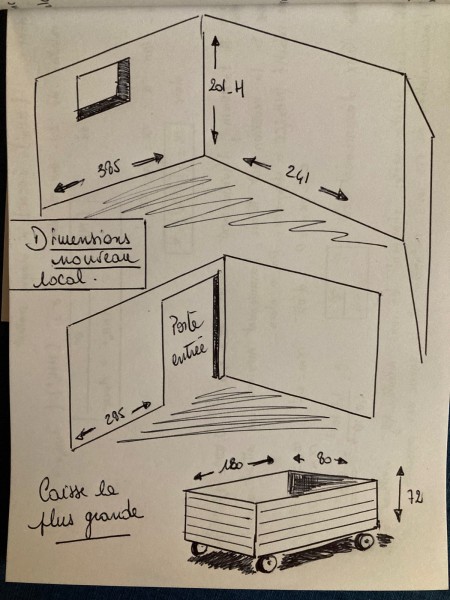 201_H
385
241
Dimensions
nouveau
local.
Porte
entrée
295
Caisse la
plus grande
180
80
72